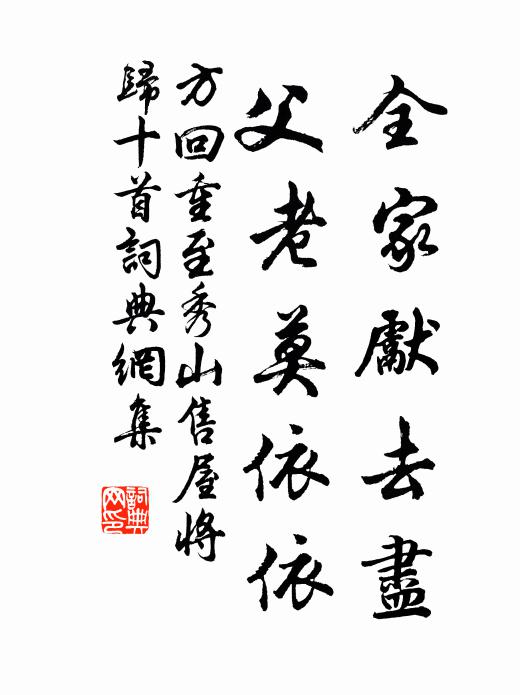 全家獻去盡
父老莫依依
方回重至秀山售屋將
歸十首詞典網集
詞典网印